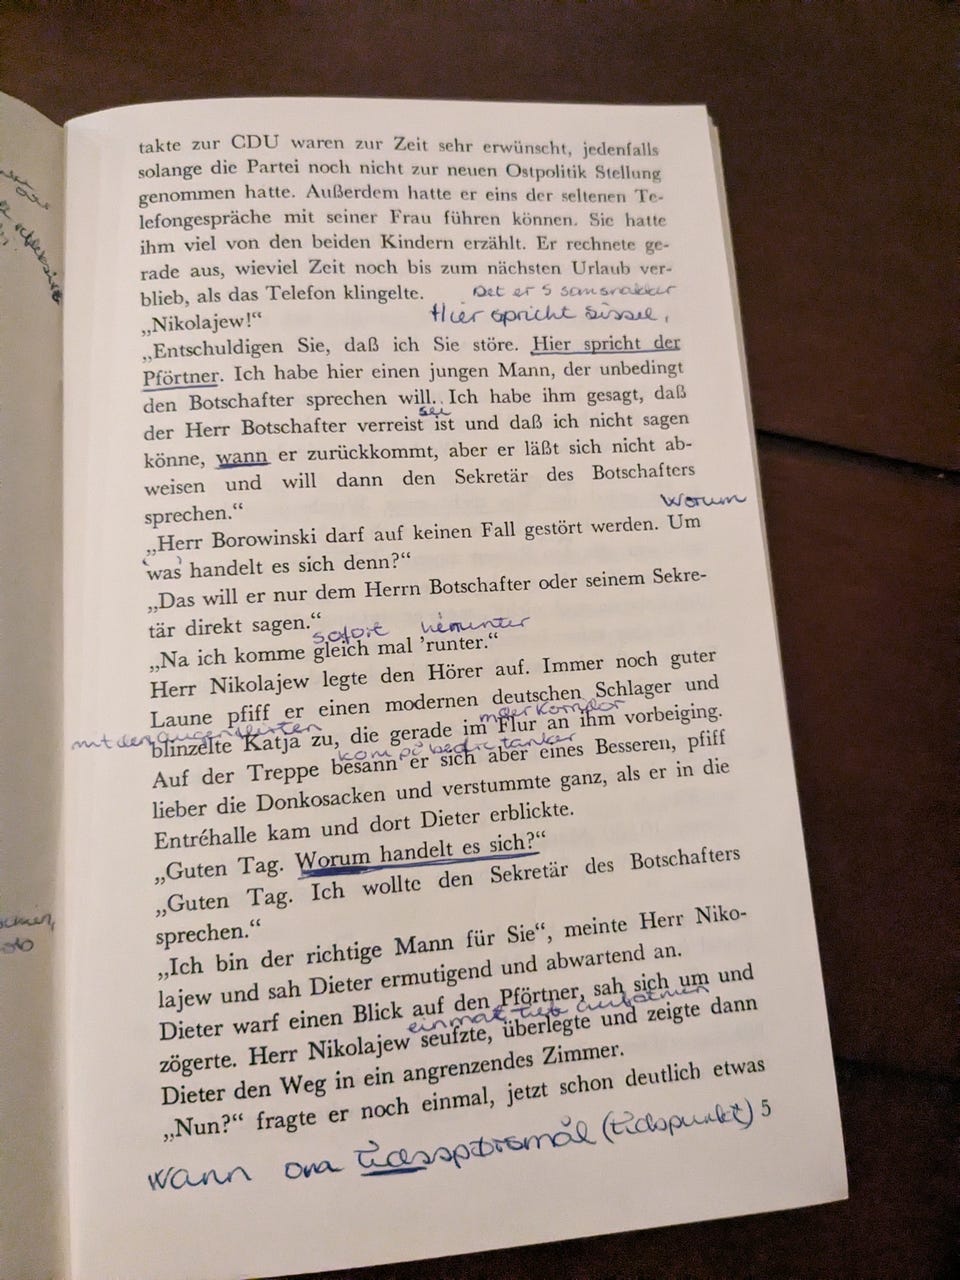 takte zur CDU waren zur Zeit sehr erwünscht, jedenfalls
solange die Partei noch nicht zur neuen Ostpolitik Stellung
genommen hatte. Außerdem hatte er eins der seltenen Te-
lefongespräche mit seiner Frau führen können. Sie hatte
ihm viel von den beiden Kindern erzählt. Er rechnete ge-
rade aus, wieviel Zeit noch bis zum nächsten Urlaub ver-
blieb, als das Telefon klingelte.
Det er S som snakker
„Nikolajew!“
Hier spricht Sissel,
„Entschuldigen Sie, daß ich Sie störe. Hier spricht der
Pförtner. Ich habe hier einen jungen Mann, der unbedingt
den Botschafter sprechen will. Ich habe ihm gesagt, daß
sei
der Herr Botschafter verreist ist und daß ich nicht sagen
könne, wann er zurückkommt, aber er läßt sich nicht ab-
weisen und will dann den Sekretär des Botschafters
sprechen.“
Worum
„Herr Borowinski darf auf keinen Fall gestört werden. Um
was handelt es sich denn?“
„Das will er nur dem Herrn Botschafter oder seinem Sekre-
tär direkt sagen.“
sofort herunter
„Na ich komme gleich mal ’runter.“
Herr Nikolajew legte den Hörer auf. Immer noch guter
Laune pfiff er einen modernen deutschen Schlager und
mit den
blinzelte Katja zu, die gerade im Flur an ihm vorbeiging.
kom på bedre tanker
Auf der Treppe besann er sich aber eines Besseren, pfiff
lieber die Donkosacken und verstummte ganz, als er in die
Entréhalle kam und dort Dieter erblickte.
„Guten Tag. Worum handelt es sich?“
„Guten Tag. Ich wollte den Sekretär des Botschafters
sprechen.“
„Ich bin der richtige Mann für Sie“, meinte Herr Niko-
lajew und sah Dieter ermutigend und abwartend an.
Dieter warf einen Blick auf den Pförtner, sah sich um und
einmal tief aufatmen
zögerte. Herr Nikolajew seufzte, überlegte und zeigte dann
Dieter den Weg in ein angrenzendes Zimmer.
„Nun?“ fragte er noch einmal, jetzt schon deutlich etwas
5
Wann om tidsspørsmål (tidspunkt)